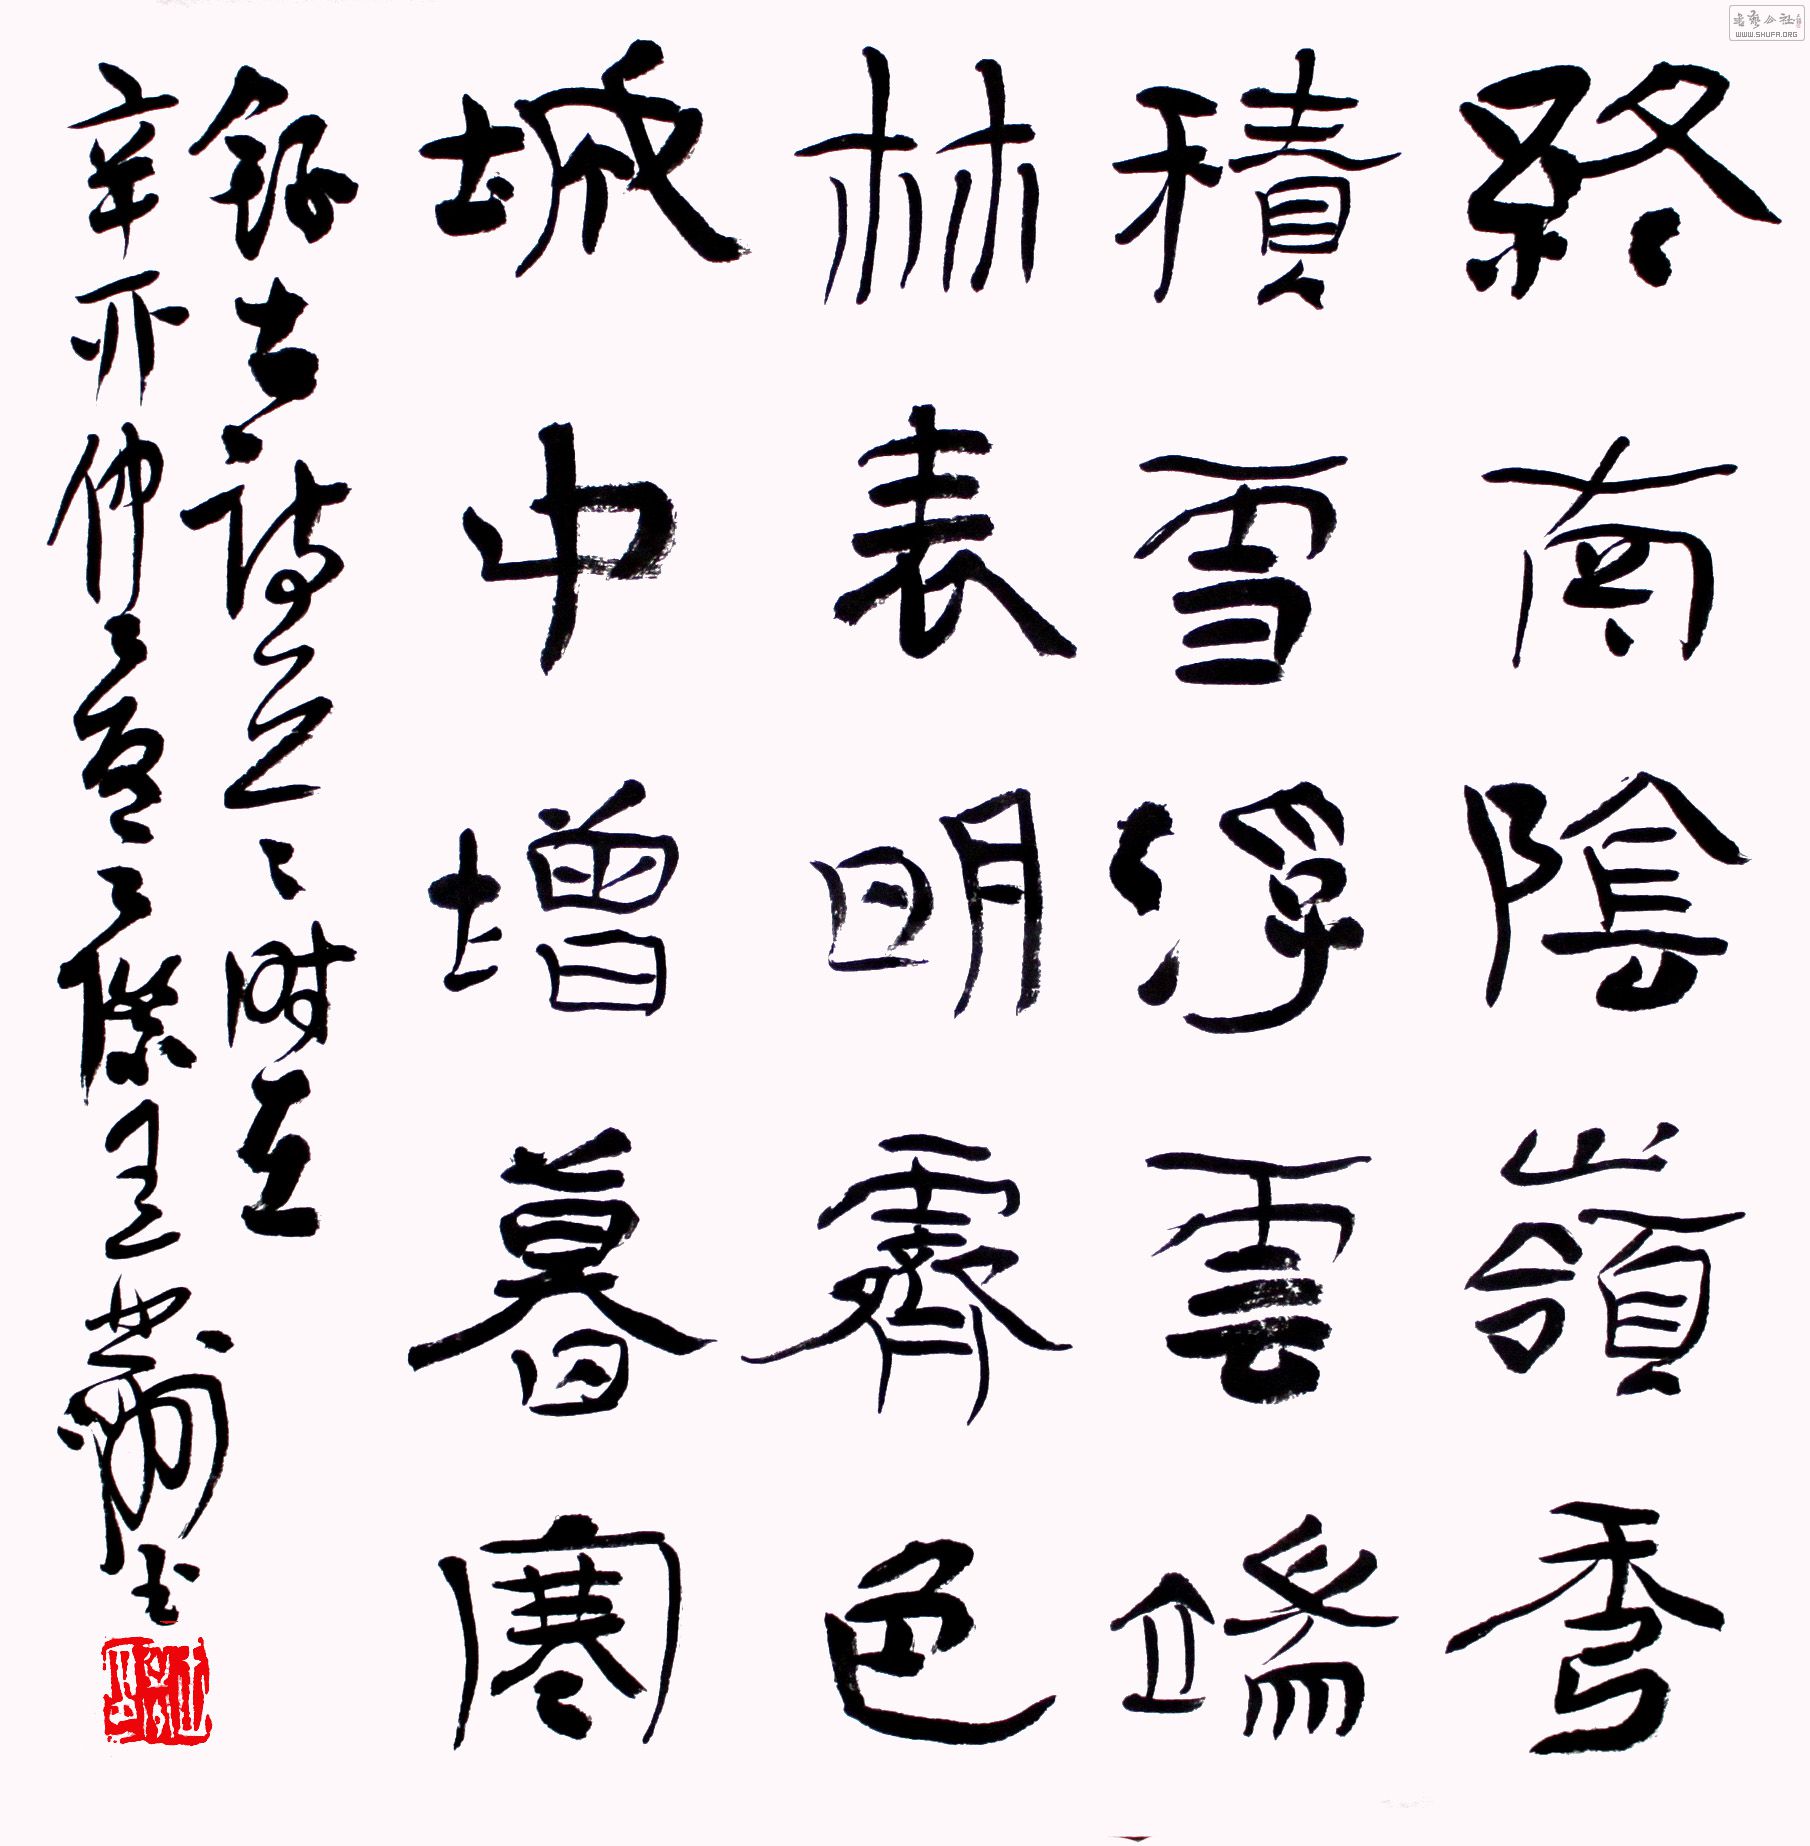 終南陰嶺秀
積雪浮雲端
林表明霽色
城中增暮寒
錄古詩之 時在
辛亥仲 夏 書
WWW.SHUFA.ORG